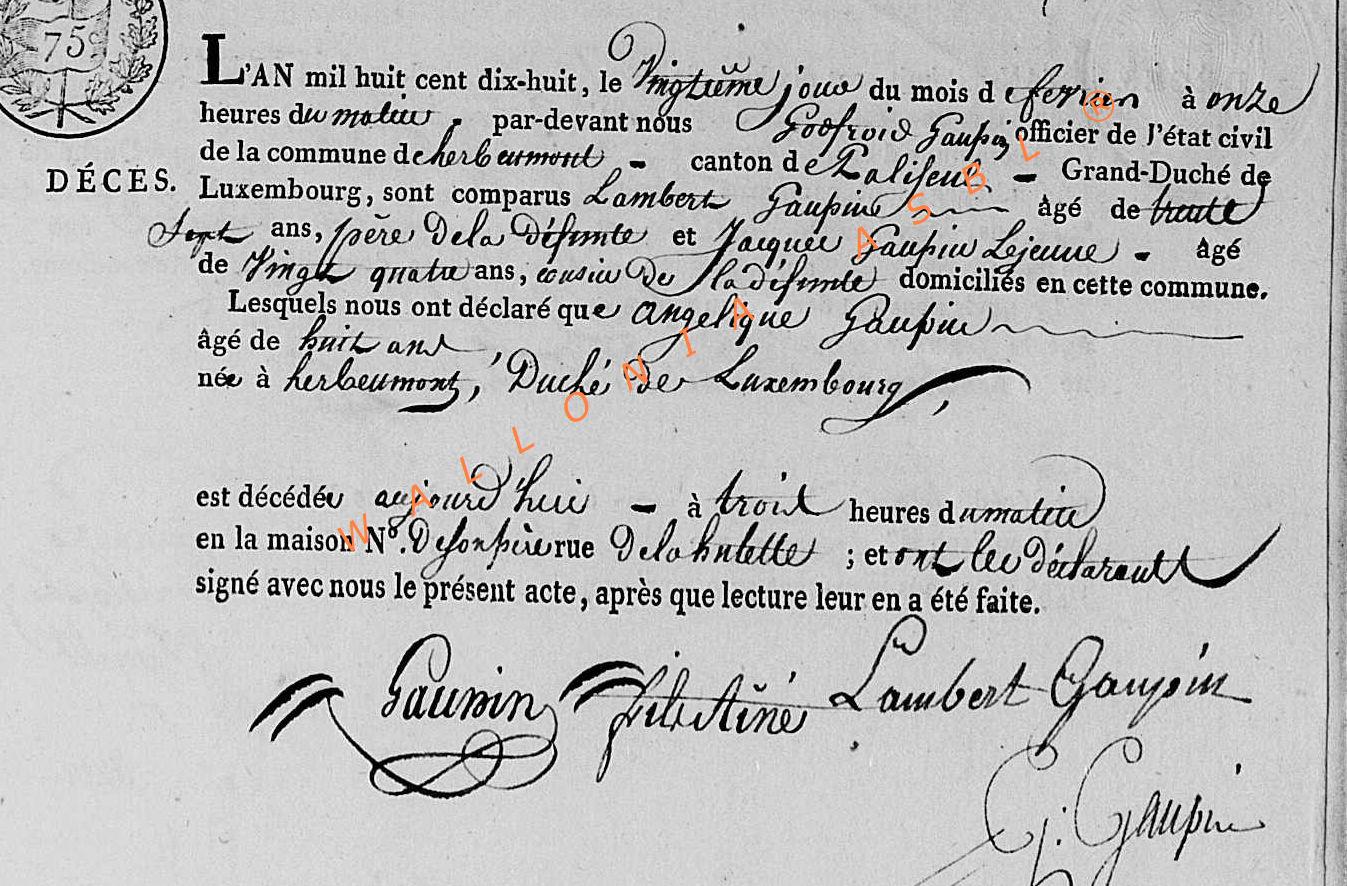 75
DÉCÈS.
L'AN mil huit cent dix-huit, le Vingtième jour du mois de fevrier à onze
heures du matin, par-devant nous Godfroid Gaupin officier de l'état civil
de la commune de herbeumont - canton de Paliseul - Grand-Duché de
Luxembourg, sont comparus Lambert Gaupin âgé de trente
Sept ans, père de la défunte et Jacques Gaupin Lejeune - âgé
de Vingt quatre ans, cousin de la défunte domiciliés en cette commune.
Lesquels nous ont déclaré que angelique Gaupin
âgé de huit ans,
née à herbeumont, Duché de Luxembourg,
est décédée aujourd'hui - à trois heures du matin
en la maison Nº. De son père rue de la hulette ; et ont les déclarants
signé avec nous le présent acte, après que lecture leur en a été faite.
Gaupin Lambert Gaupin
G: Gaupin
WALLONIA ASBL ®